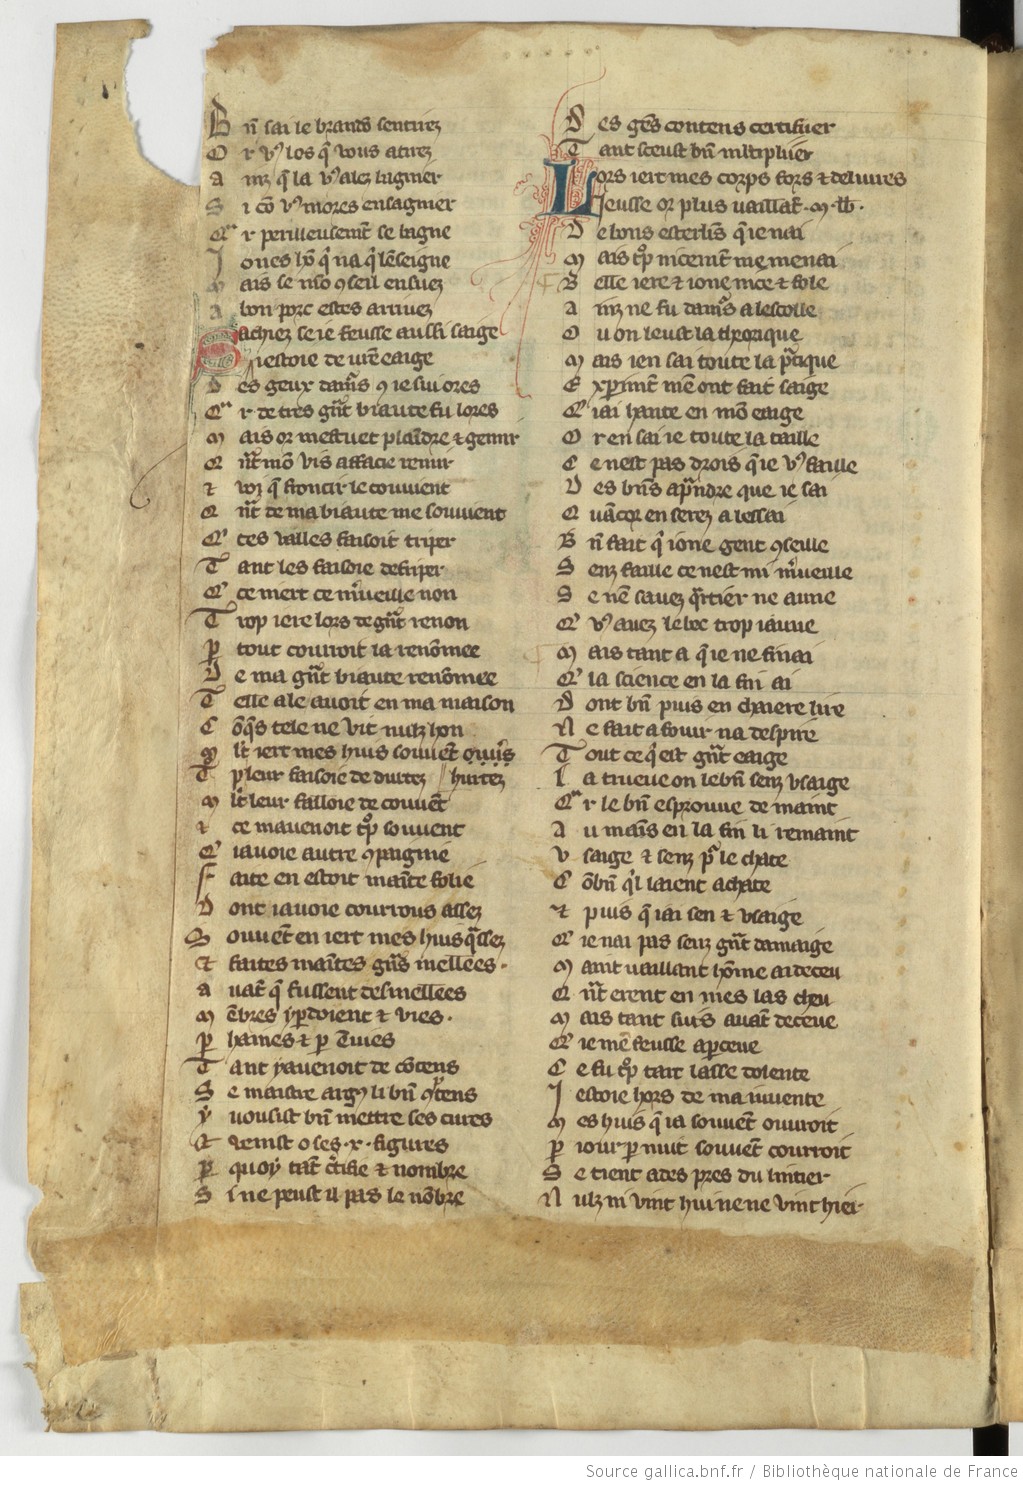 B n̄ sai le brandō sentirez
O r vꝰ los q̄ vous atirez
A inz q̄ la vꝰ alez baignier
S i cō vꝰ mores ensaignier
Q ͣr perilleusemēt se baigne
J ones hō q̄ na q̄ lēseigne
M ais se mō ꝯseil ensuez
A bon porc estes arriuez
S achiez se ie feusse aussi saige
J iestoie de vr̄e eaige
D es geux damrs ꝯ ie sui ores
Q ͣr de tres gn̄t biaute fu lores
M ais or mestuet plaīdre ⁊ gemir
Q n̄t mō vis efface remir
⁊ voi q̄ froncir le couuient
Q n̄t de ma biaute me souuient
Q ces valles faisoit triper
T ant les faisoie defriper
Q ce niert ce mͬueille non
T rop iere lors de gn̄t renon
P tout couroit la renōmee
D e ma gn̄t biaute renōmee
T elle ale auoit en ma maison
C ōq̄s tele ne vit nulz hon
M lt iert mes huis souuēt
T p leur faisoie de durtez hurtez
M lt leur falloie de conuēt
⁊ ce mauenoit tͦp souuent
Q iauoie autre ꝯpaignie
F aite en estoit mainte folie
D ont iauoie courrous assez
S ouuēt en iert mes huis qͣssez
⁊ faites maītes gn̄s mellees.
A uāt q̄ fussent desmellees
M ēbres ꝑdoient ⁊ vies.
P haines ⁊ p ēuies
T ant y auenoit de cōtens
S e maistre argꝰ li bn̄ ꝯtens
Y vousist bn̄ mettre ses cures
⁊ venist o ses .x. figures
P quoy tāt cͭifie ⁊ nombre
S i ne peust il pas le nōbre
D es gn̄s contens certifier
T ant sceust bn̄ mltiplier
L ors iert mes corps fors ⁊ deliures
J eusse or plus vaillāt .m. lb.
D e bons esterlīs q̄ ie nai
M ais tͦp nicemēt me menai
B elle iere ⁊ ione nice ⁊ fole
A inz ne fu damꝰs a lescolle
O u on leust la theorique
M ais ien sai toute la pͣtique
E xꝑimēt mē ont fait saige
Q iai hante en mō eaige
O r en sai ie toute la taille
C e nest pas drois q̄ ie vꝰ faille
D es bn̄s apͬndre que ie sai
Q uācor en serez a lessai
B n̄ fait q̄ ione gent ꝯseille
S enz faille ce nest mi mͬueille
S e nē sauez qͣrtier ne aune
Q vꝰ auez le bec trop iaune
M ais tant a q̄ ie ne finai
Q la science en la fin ai
D ont bn̄ puis en chaiere lire
N e fait a fouir na despire
T out ce q̄ est gn̄t eaige
L a trueue on le bn̄ senz vsaige
Q ͣr le bn̄ esprouue de maint
A u mains en la fin li remaint
V saige ⁊ senz pͬ le chate
C ōbn̄ qͥl laient achate
⁊ puis q̄ iai sen ⁊ vsaige
Q ie nai pas senz gn̄t damaige
M aint vaillant hōme ai deceu
Q n̄t erent en mes las cheu
M ais tant suis auāt deceue
Q ie mē feusse aꝑceue
C e fu tͦp tart lasse dolente
J estoie hors de ma iuuente
M es huis q̄ ia souuēt ouuroit
P iour p nuit souuēt courroit
S e tient ades pres du lintier
N ulz ni vint hui ne ne vint hier
Source gallica.bnf.fr / Bibliothèque nationale de France